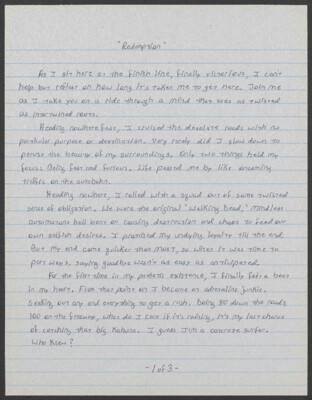 "Redemption"
As I sit here at the finish line, finally victorious, I can't
help but reflect on how long it's taken me to get here. Join me
as I take you on a ride through a mind that was as twisted
as intertwined roots.
Heading nowhere fast, I cruised the desolate roads with no
particular purpose or destination. Very rarely did I slow down to
peruse the beauty of my surroundings. Only two things held my
focus. Being fast and furious. Life passed me by like oncoming
traffic on the autobahn.
Heading nowhere, I rolled with a squad out of some twisted
sense of obligation. We were the original "walking dead." Mindless
automatons hell bent on causing destruction and chaos to feed our
own selfish desires. I promised my undying loyalty till the end.
But my end came quicker than most, so when it was time to
part ways, saying goodbye wasn't as easy as anticipated.
For the first time in my pointless existence, I finally felt a beat
in my heart. From that point on I became an adrenaline junkie.
Seeking out any and everything to get a rush. Doing 80 down the roads
100 on the freeway, what do I care if it's raining, it's my last chance
of catching that big kahuna. I guess I'm a concrete surfer.
Who knew?
-1 of 3-